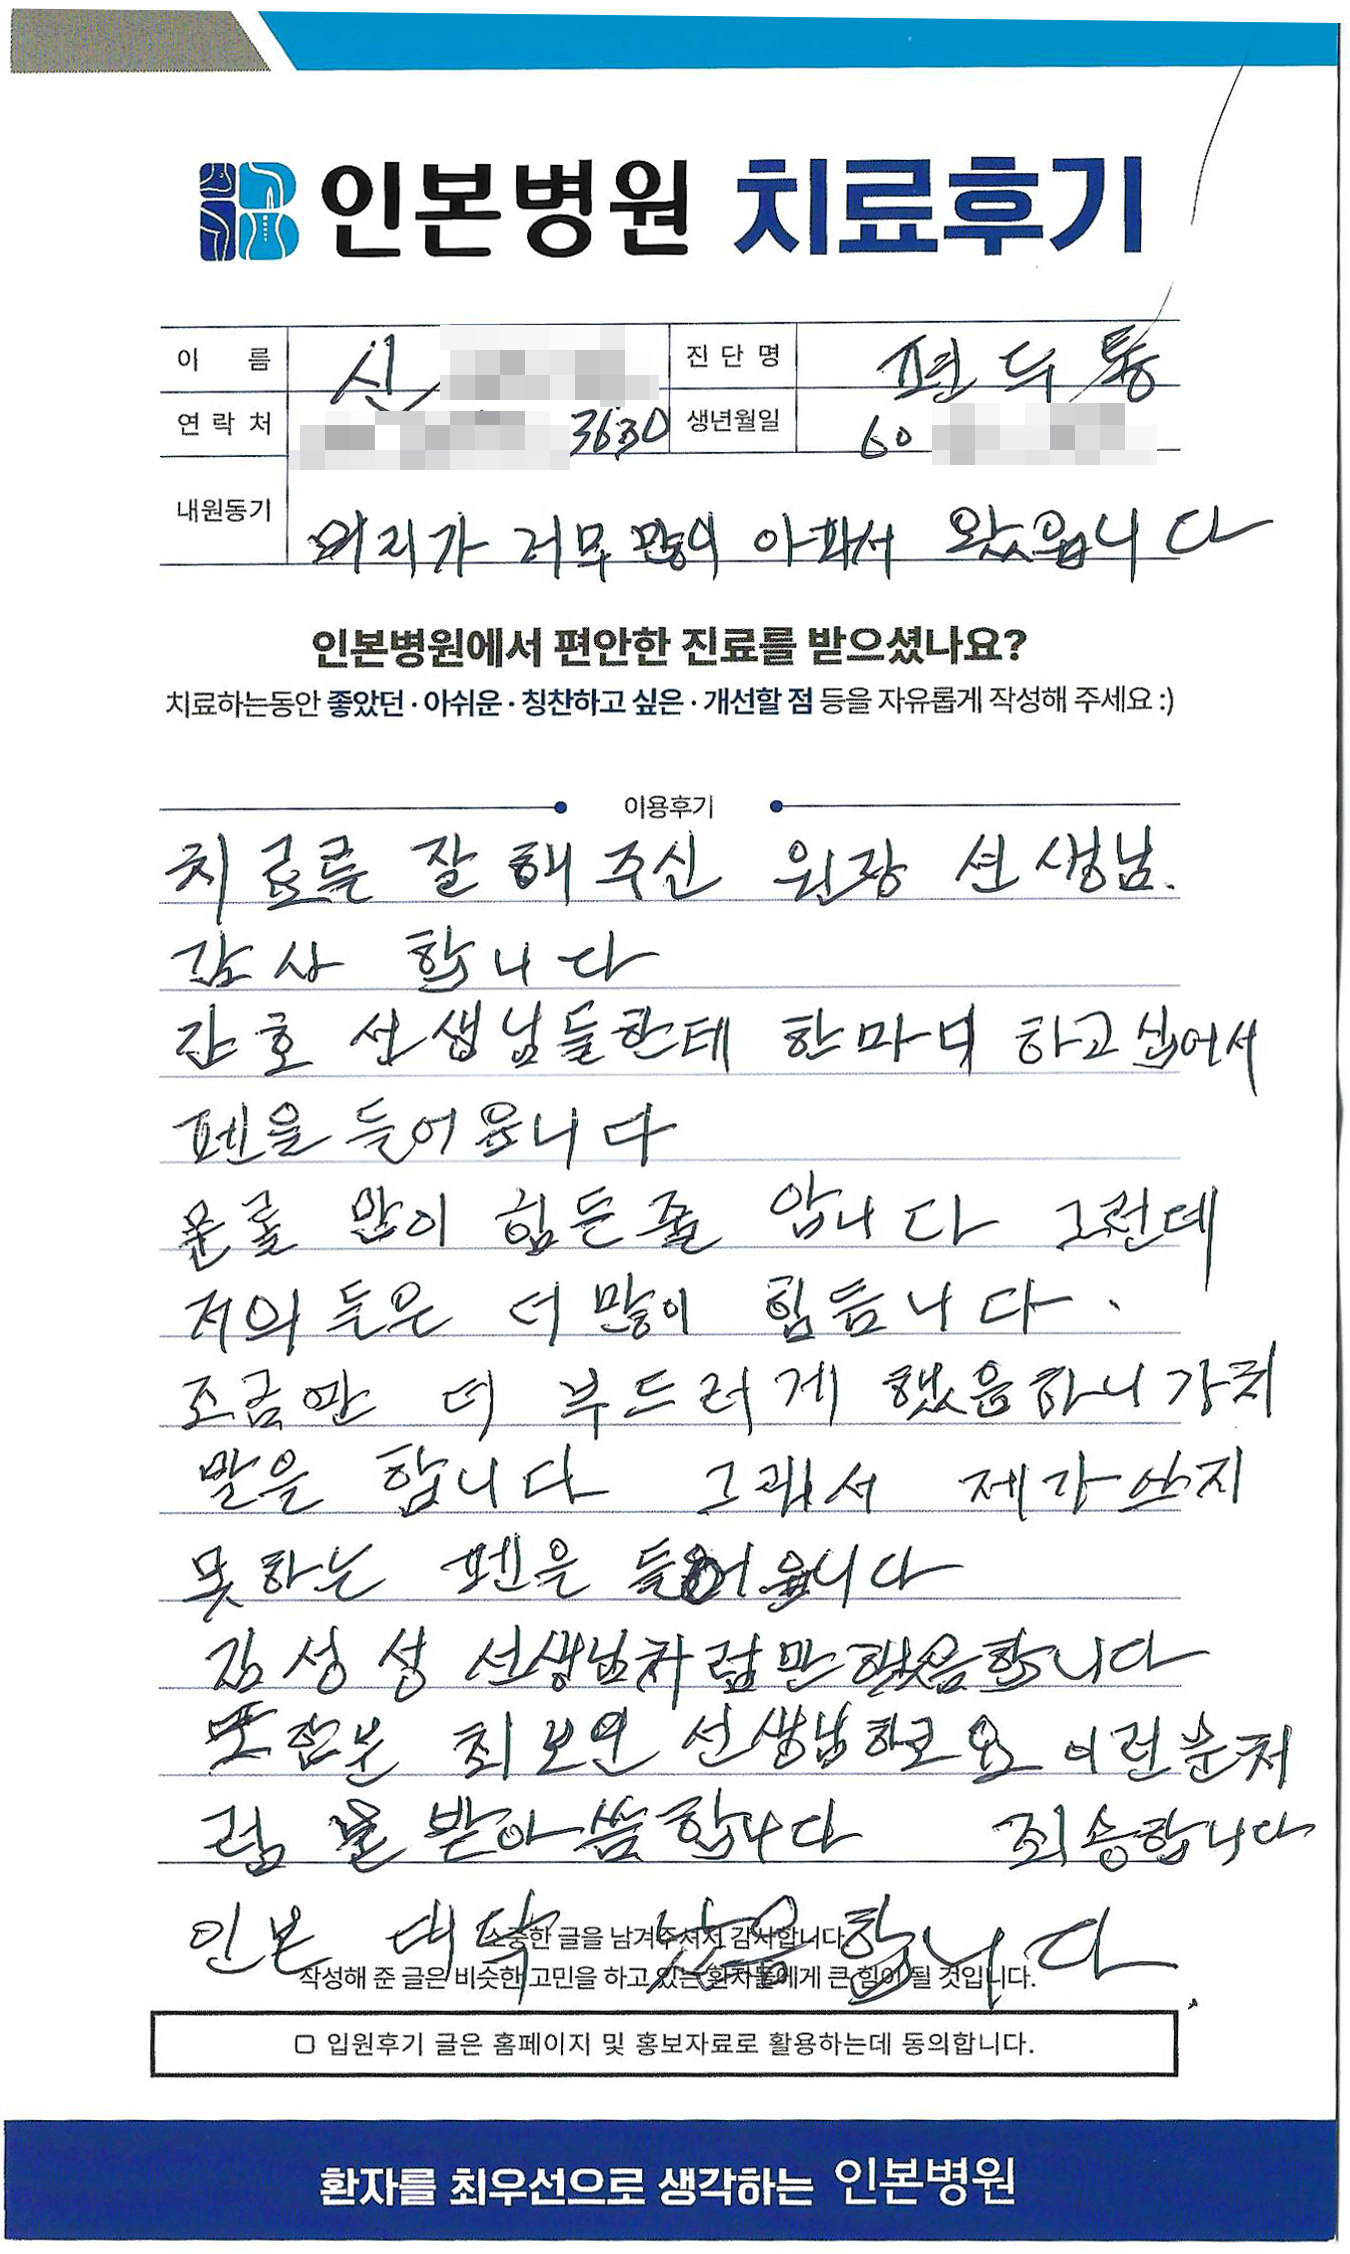 인본병원 치료후기
이 름 신 진 단 명 편두통
연 락 처 3630 생년월일 60
내원동기 머리가 너무 많이 아파서 왔읍니다
인본병원에서 편안한 진료를 받으셨나요?
치료하는동안 좋았던 · 아쉬운 · 칭찬하고 싶은 · 개선할 점 등을 자유롭게 작성해 주세요 :)
이용후기
치료를 잘 해 주신 원장 선생님.
감사 합니다
간호 선생님들한테 한마디 하고싶어서
펜을 들어읍니다
많이 힘든줄 압니다 그런데
저의 들은 더 많이 힘듭니다.
조금만 더 부드러게 했음하니
말을 합니다 그래서 제가쓰지
못하는 펜을 들어읍니다
김성성 선생님차럼만 했음합니다
또한분 최보연 선생님하고요 이런분처
럼 본 받아씀합니다 죄송합니다
인본 대박 났음합니다
소중한 글을 남겨주셔서 감사합니다.
작성해 준 글은 비슷한 고민을 하고 있는 환자들에게 큰 힘이 될 것입니다.
□ 입원후기 글은 홈페이지 및 홍보자료로 활용하는데 동의합니다.
환자를 최우선으로 생각하는 인본병원